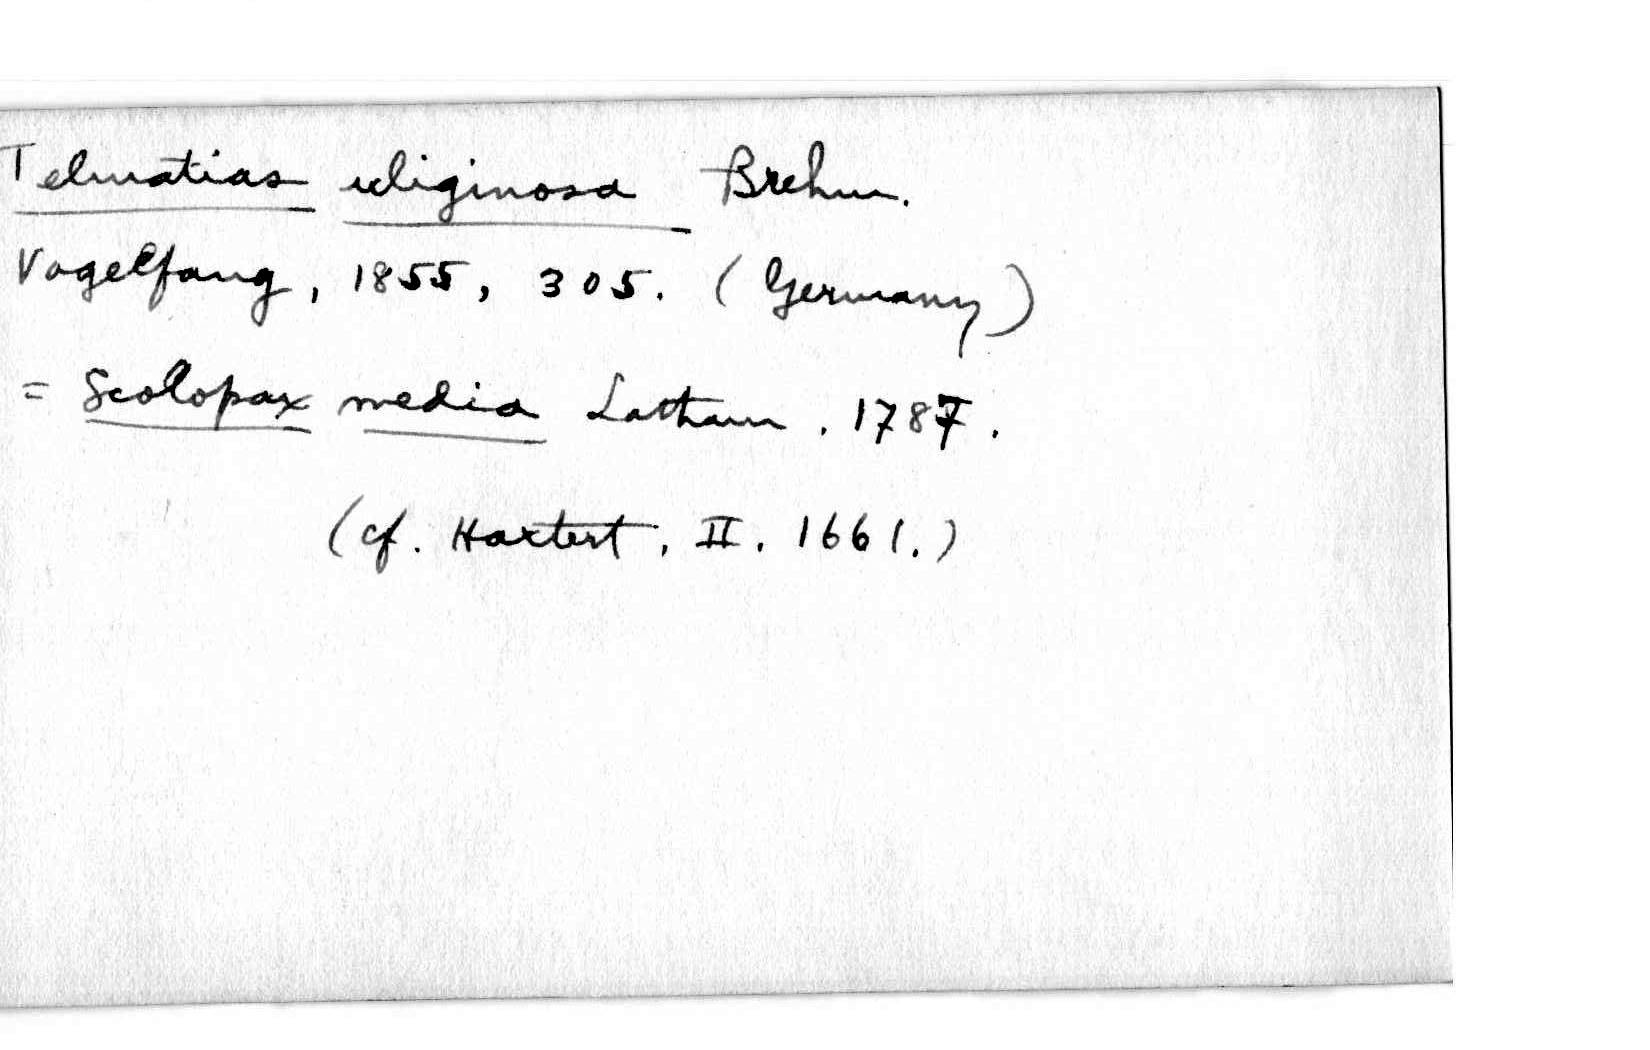 Telmatias uliginosa Brehm.
Vogelfang, 1855, 305. (Germany)
= Scolopax media Latham. 1787.
(cf. Hartert, II. 1661.)